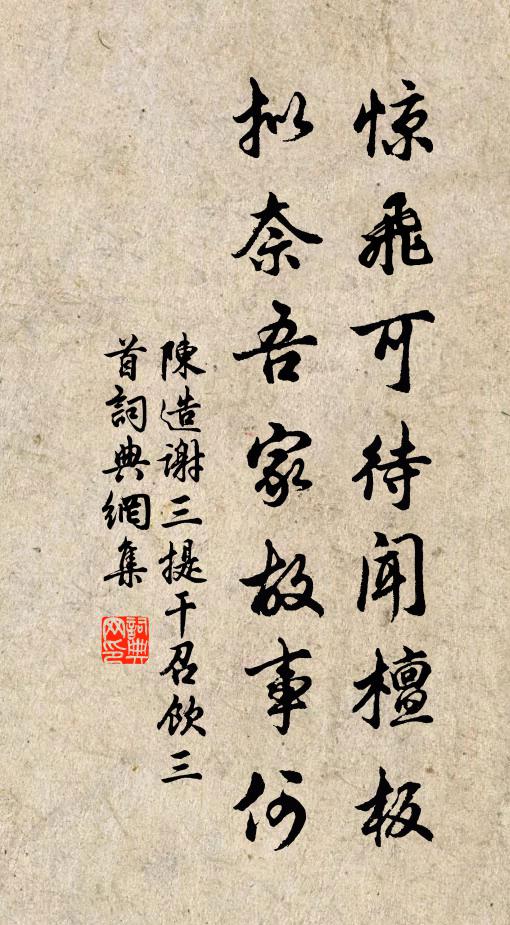 惊飛可待闻檀板
拟奈吾家故事何
陳造谢三提干召飲三
首詞典網集
詞典网印